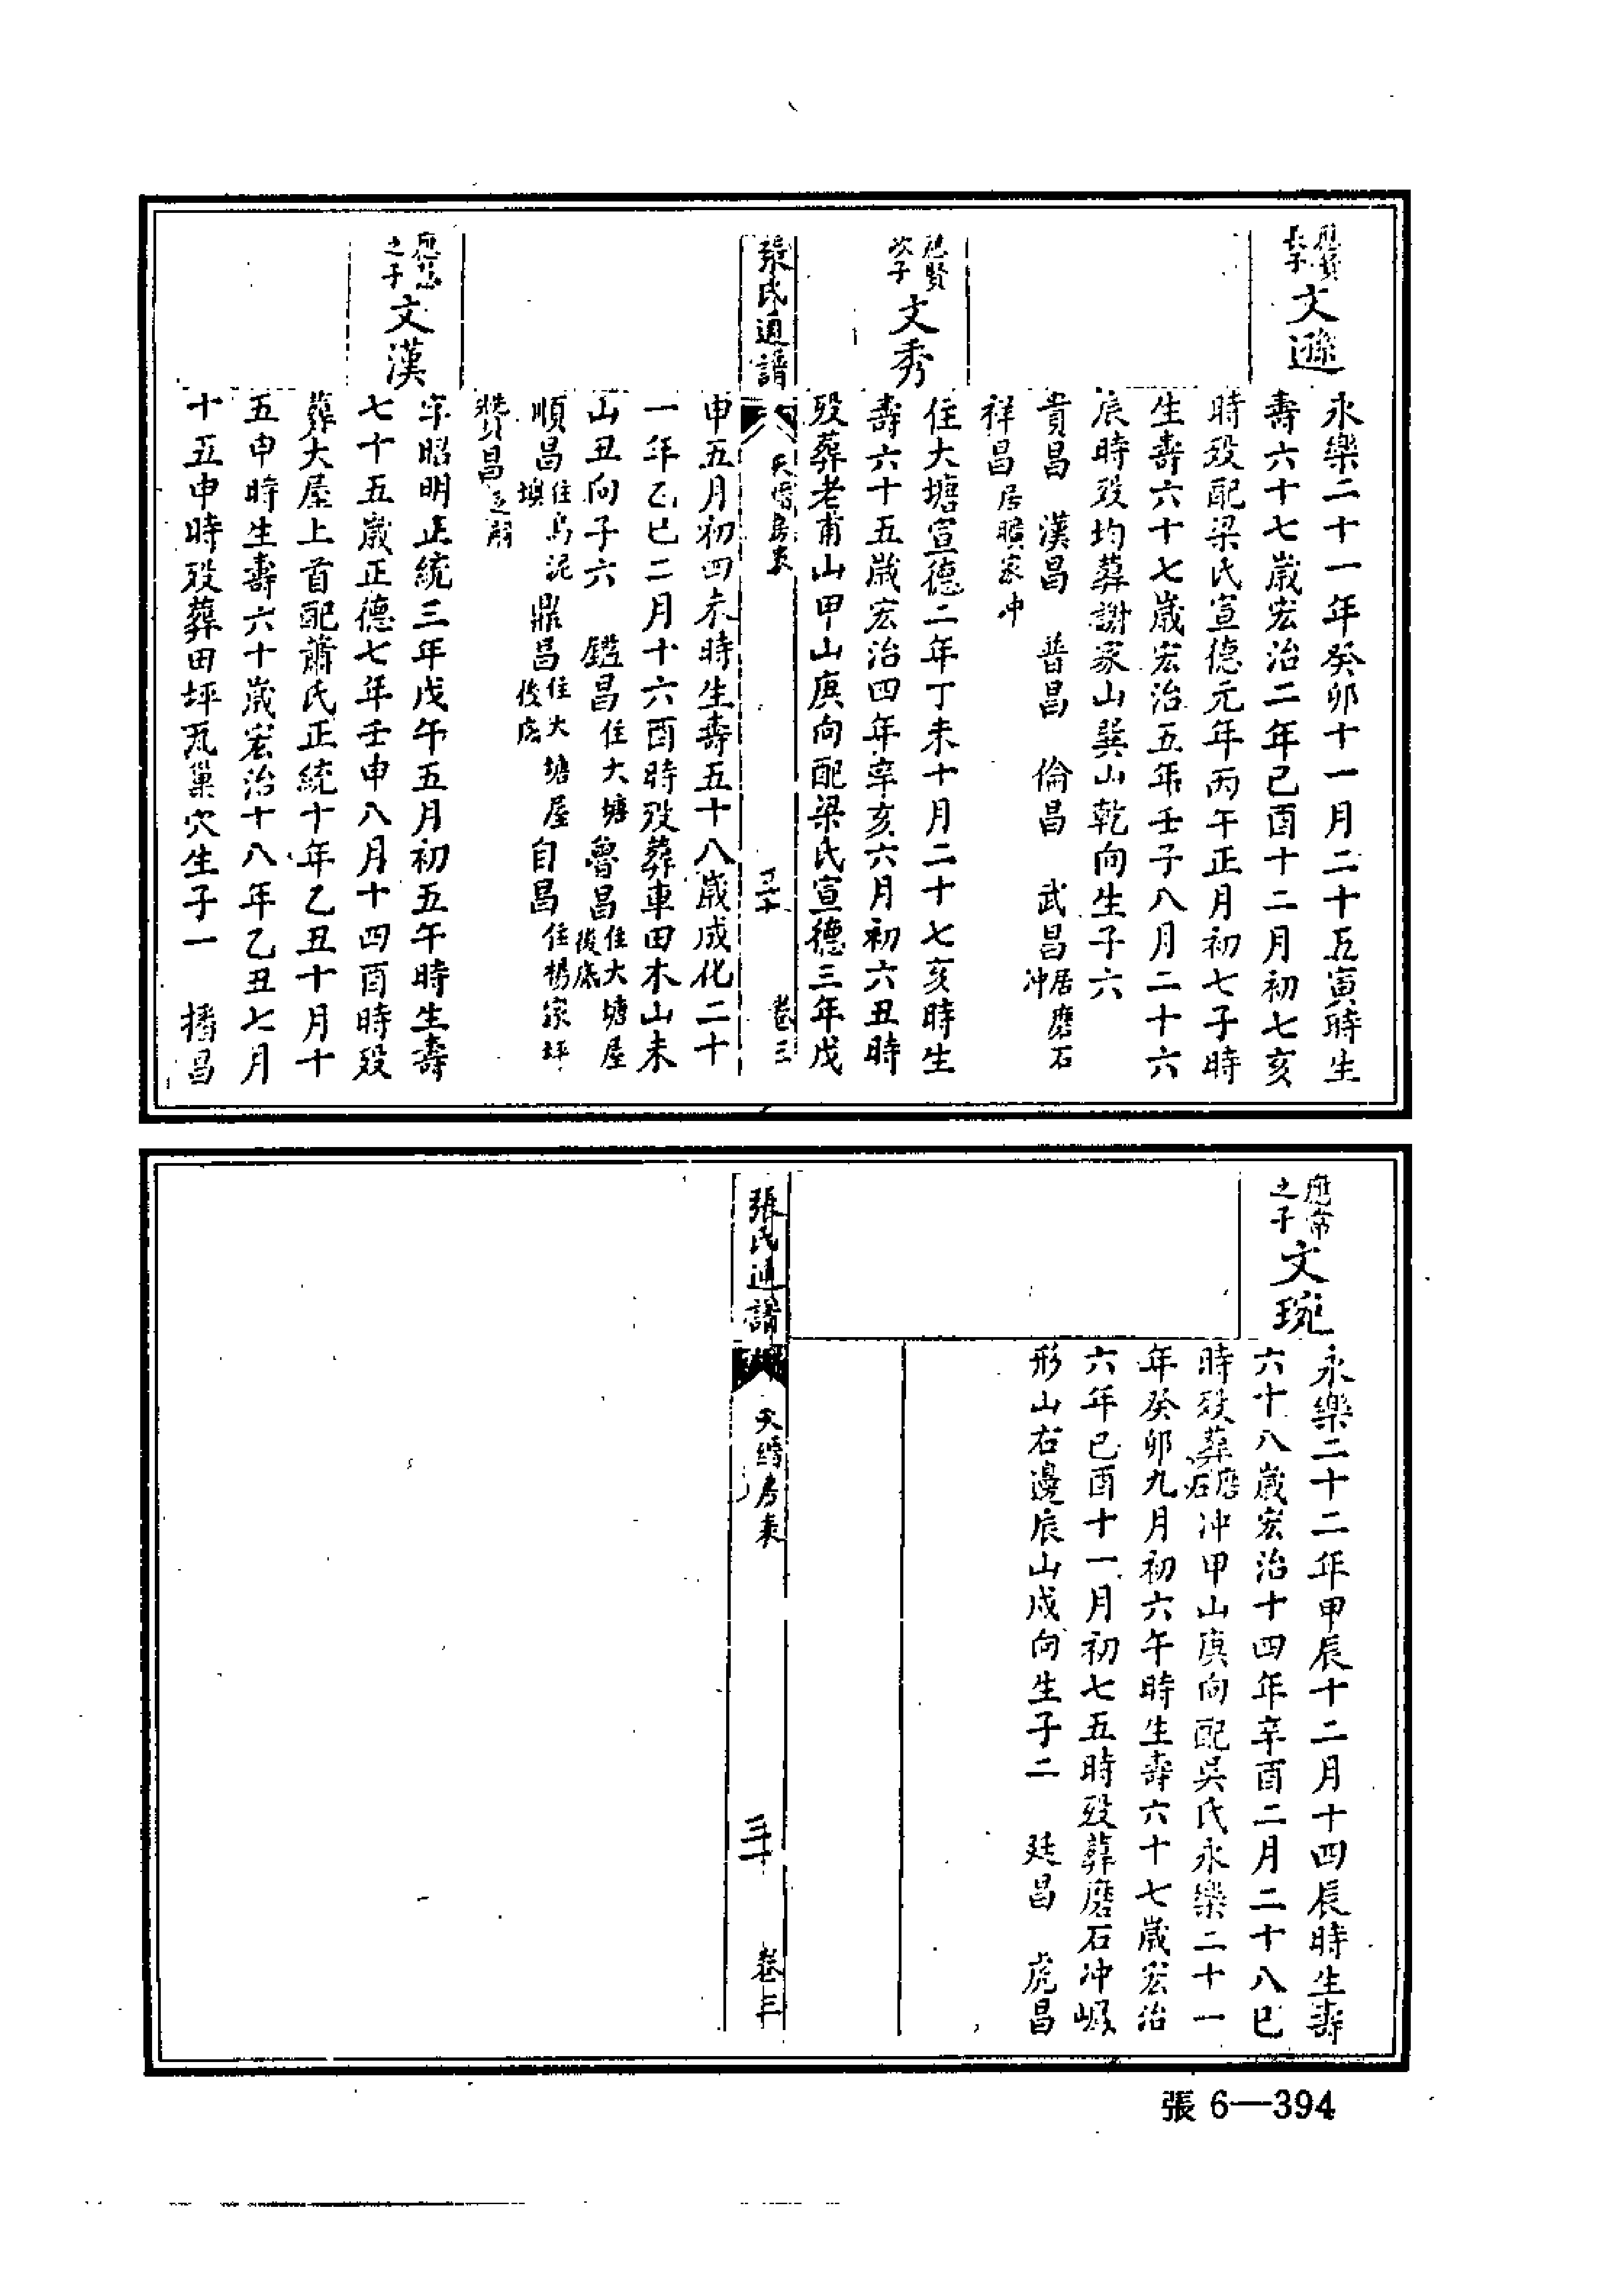 應賢長子
文遜
永樂二十一年癸卯十一月二十五寅時生
壽六十七歲宏治二年己酉十二月初七亥
時歿配梁氏宣德元年丙午正月初七子時
生壽六十七歲宏治五年壬子八月二十六
辰時歿均葬謝家山巽山乾向生子六
貴昌 漢昌 普昌 倫昌 武昌居磨石冲
祥昌居曠家冲
應賢次子
文秀
住大塘宣德二年丁未十月二十七亥時生
壽六十五歲宏治四年辛亥六月初六丑時
歿葬老甫山甲山庚向配梁氏宣德三年戊
張氏通譜 天 房表 三十 卷三
申五月初四未時生壽五十八歲成化二十
一年乙巳二月十六酉時歿葬車田木山未
山丑向子六 鑑昌住大塘 魯昌住大塘屋後底
順昌住烏泥塽 鼎昌住大塘屋後底 自昌住楊家坪
贊昌
之子
文漢
字昭明正統三年戊午五月初五午時生壽
七十五歲正德七年壬申八月十四酉時歿
葬大屋上首配蕭氏正統十年乙丑十月十
五申時生壽六十歲宏治十八年乙丑七月
十五申時歿葬田坪瓦巢穴生子一 播昌
應常之子
文琬
永樂二十二年甲辰十二月十四辰時生壽
六十八歲宏治十四年辛酉二月二十八巳
時歿葬磨石冲甲山庚向配吳氏永樂二十一
年癸卯九月初六午時生壽六十七歲宏治
六年己酉十一月初七五時歿葬磨石冲
形山右邊辰山戌向生子二 廷昌 虎昌
張氏通譜 天 房表 卷三
張6—394